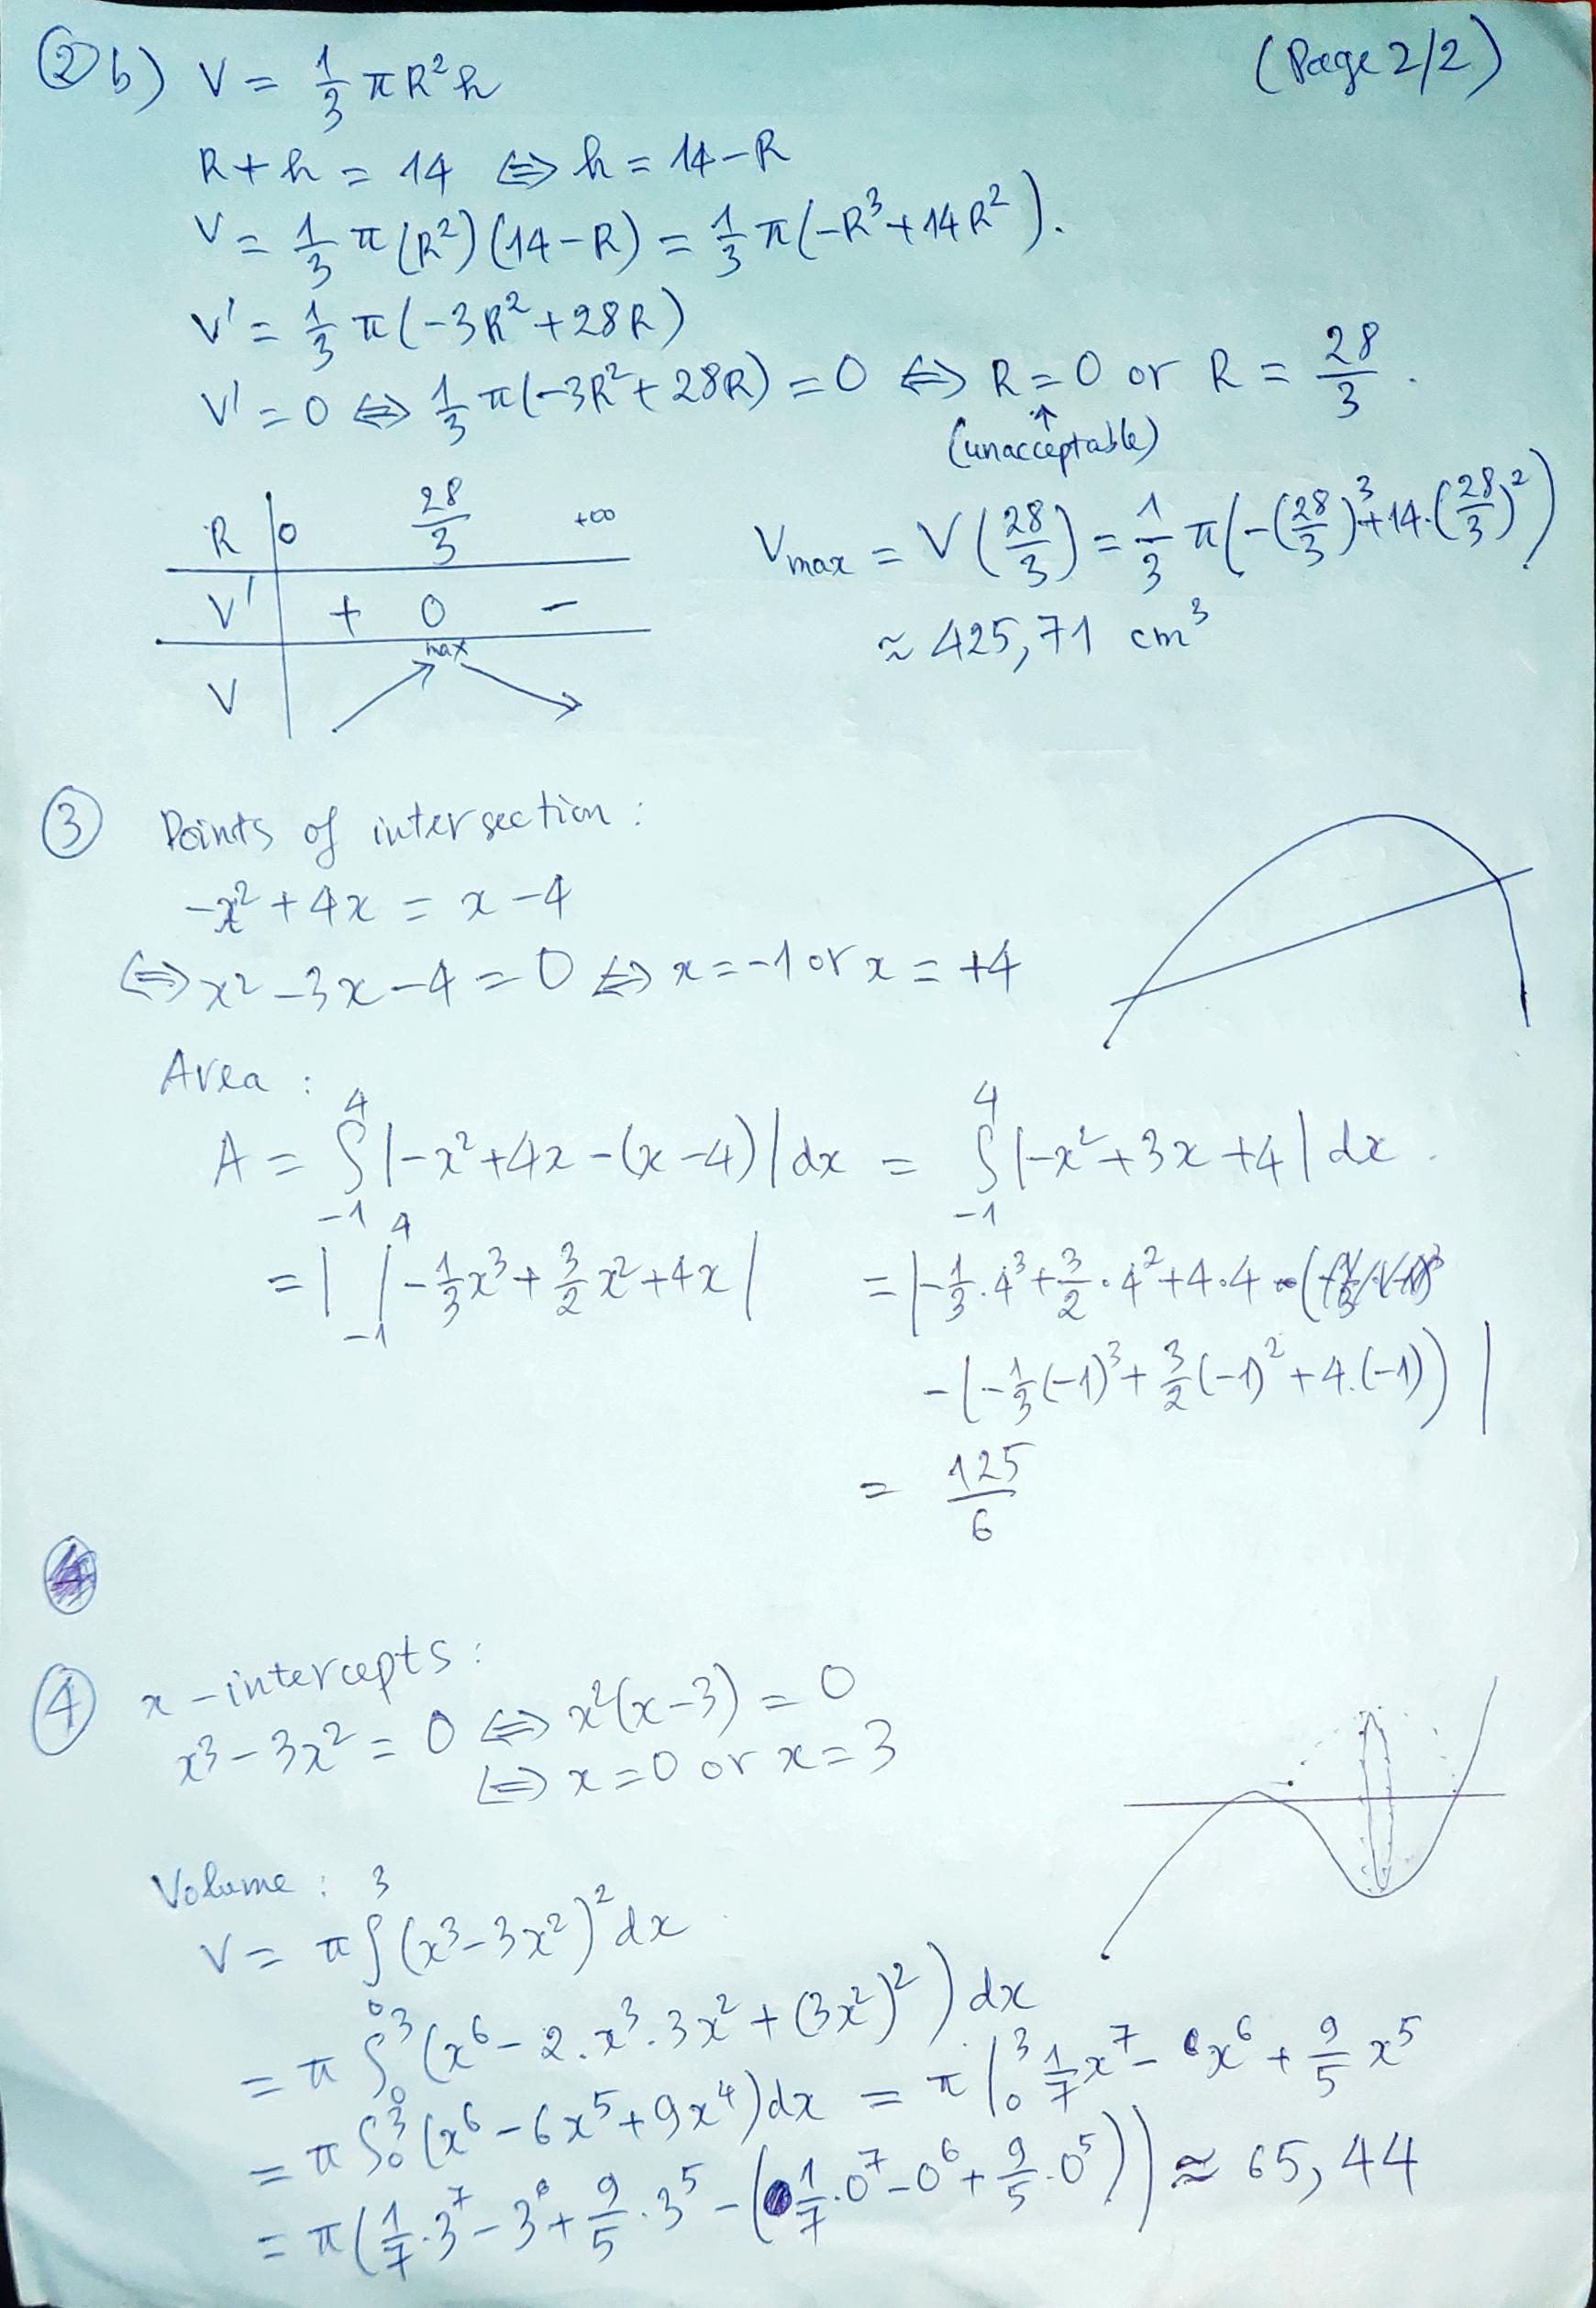 ② b) V = 1/3 πR²h
(Page 2/2)
R + h = 14 ⇔ h = 14 − R
V = 1/3 π(R²)(14 − R) = 1/3 π(−R³ + 14R²).
V' = 1/3 π(−3R² + 28R)
V' = 0 ⇔ 1/3 π(−3R² + 28R) = 0 ⇔ R = 0 or R = 28/3.
↑
(unacceptable)
R | 0 28/3 +∞
V' | + 0 −
max
V | ↗ ↘
Vmax = V(28/3) = 1/3 π(−(28/3)³ + 14.(28/3)²)
≈ 425,71 cm³
③ Points of intersection:
−x² + 4x = x − 4
⇔ x² − 3x − 4 = 0 ⇔ x = −1 or x = +4
Area:
A = ∫₋₁⁴ |−x² + 4x − (x − 4)| dx = ∫₋₁⁴ |−x² + 3x + 4| dx.
= | |₋₁⁴ −1/3 x³ + 3/2 x² + 4x | = |−1/3 . 4³ + 3/2 . 4² + 4.4
−(−1/3(−1)³ + 3/2(−1)² + 4.(−1)) |
= 125/6
④ x-intercepts:
x³ − 3x² = 0 ⇔ x²(x − 3) = 0
⇔ x = 0 or x = 3
Volume:
V = π∫₀³ (x³ − 3x²)² dx
= π∫₀³ (x⁶ − 2.x³.3x² + (3x²)²) dx
= π∫₀³ (x⁶ − 6x⁵ + 9x⁴) dx = π |₀³ 1/7 x⁷ − x⁶ + 9/5 x⁵
= π(1/7 . 3⁷ − 3⁶ + 9/5 . 3⁵ − (1/7 . 0⁷ − 0⁶ + 9/5 . 0⁵)) ≈ 65,44